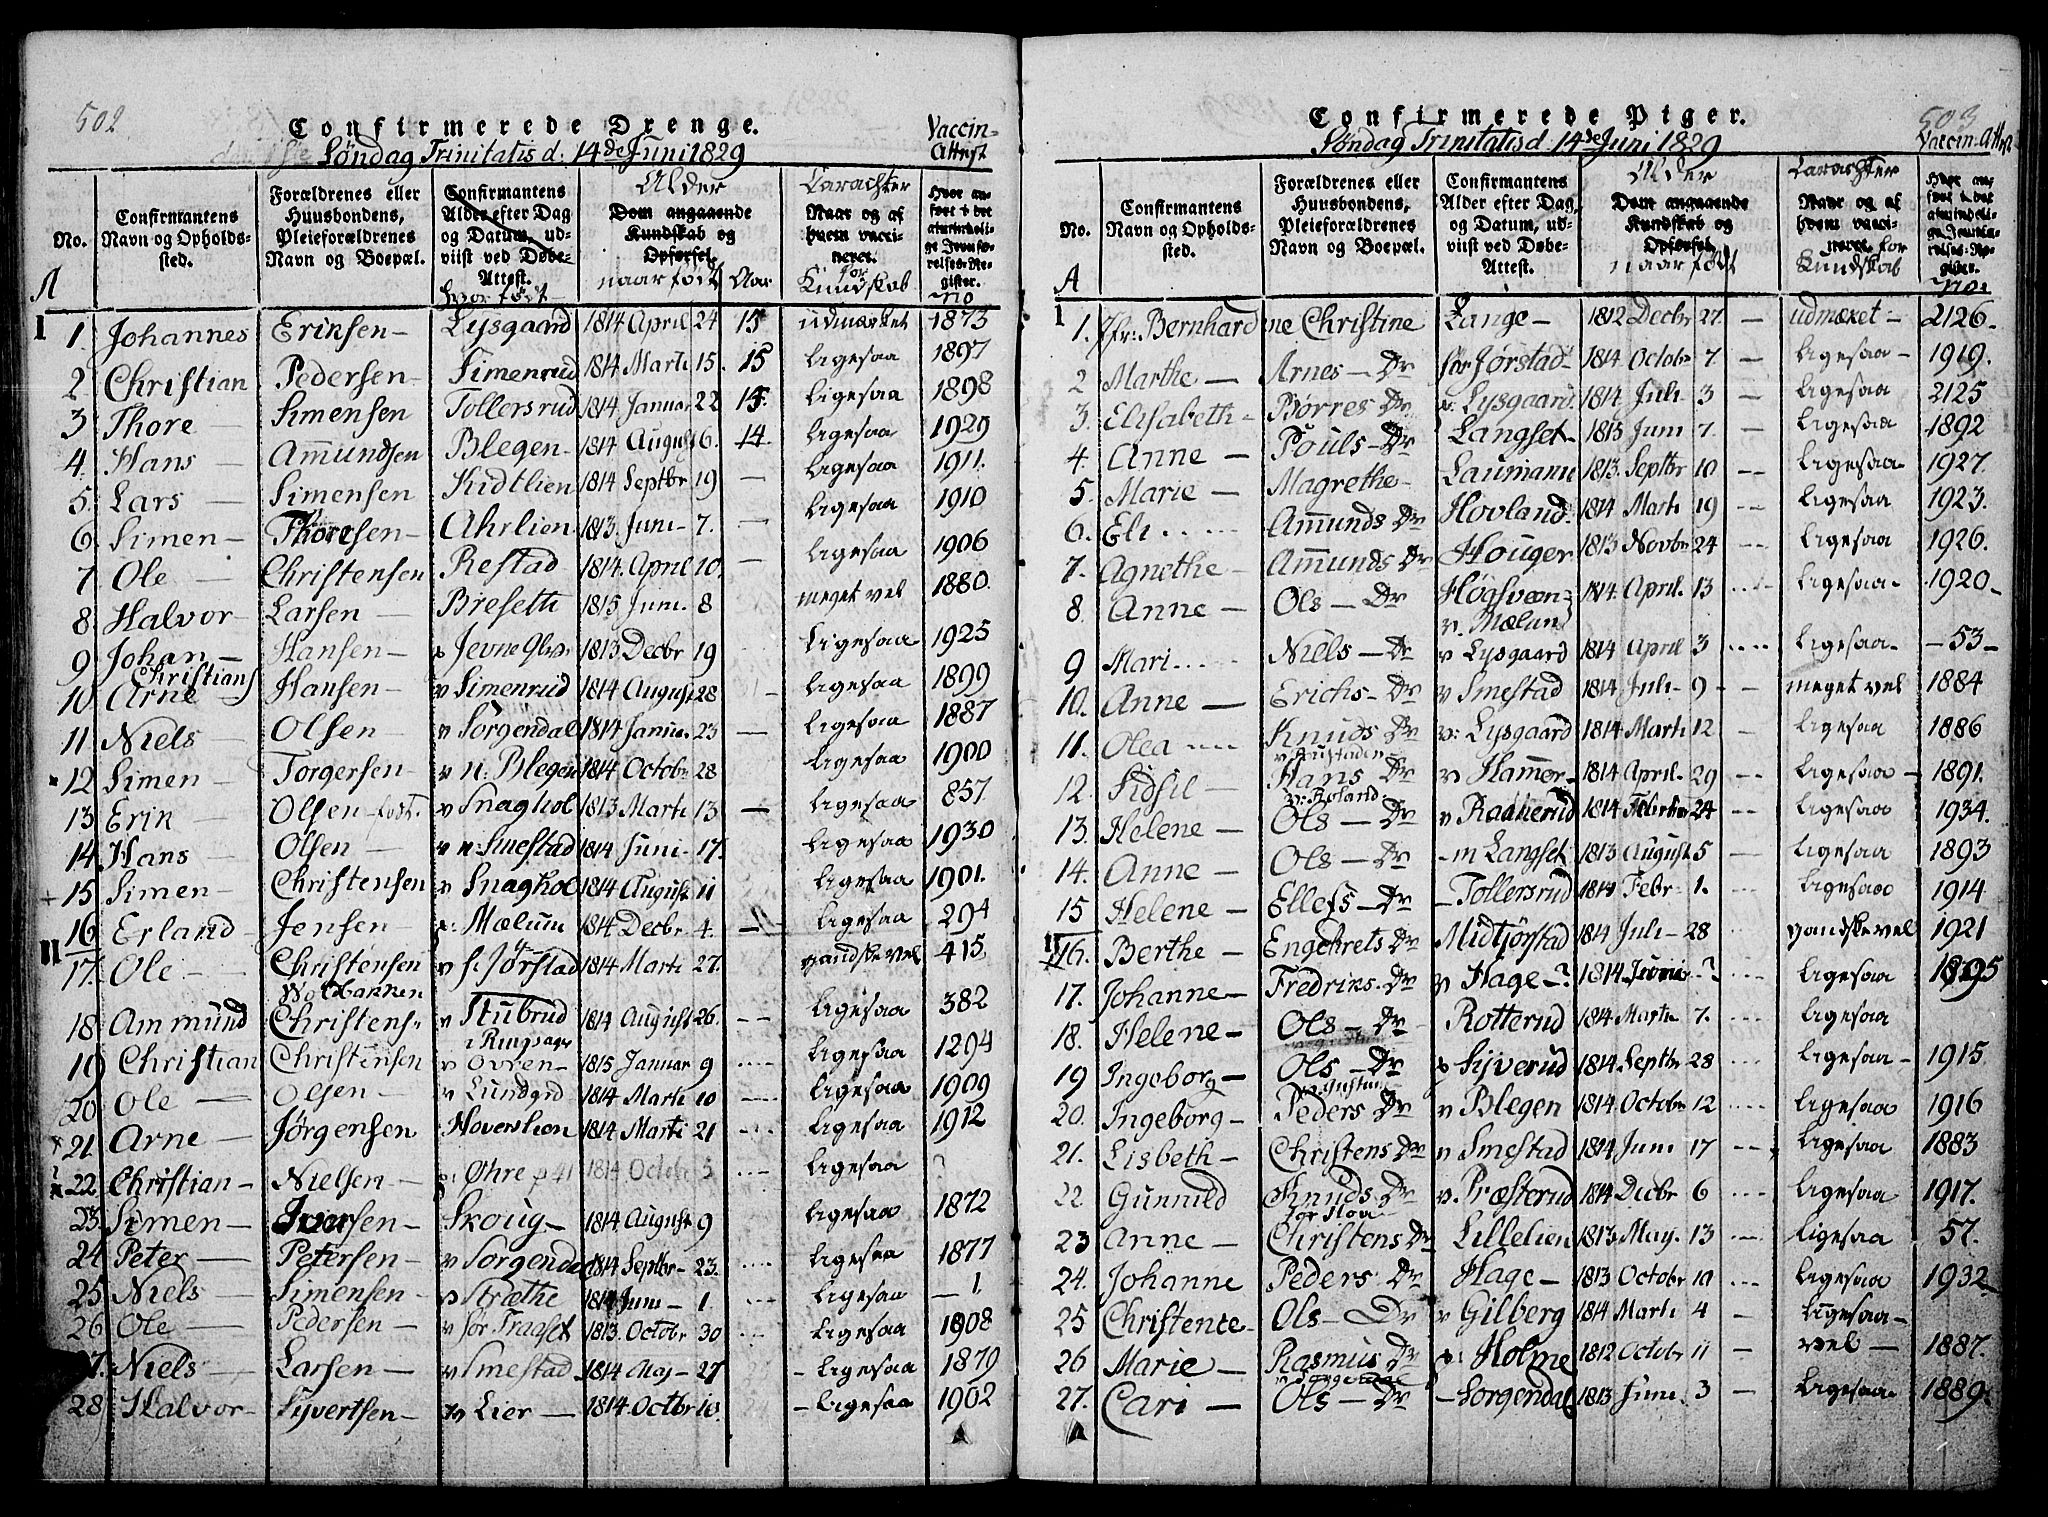 502
Confirmerede Drenge.
Søndag Trinitatis d: 14de Juni 1829
Vaccin-Attest
No.
Confirmantens Navn og Opholdssted.
Forældrenes eller Huusbondens, Pleieforældrenes Navn og Boepæl.
Confirmantens Alder efter Dag og Datum, udviist ved Døbe-Attest.
hvor født
Alder
Dom angaaende Kundskab og Opførsel.
naar født Aar
Carachter
Naar og af hvem vaccineret.
for Kundskab
Hvor anført i det almindelige Jevnførelses-Register.
no
A
I
1. Johannes Eriksen Lysgaard 1814 April 24 15 udmærket 1873
2 Christian Pedersen Simenrud 1814 Marti 15. 15 ligesaa 1897
3 Thore Simensen Tollersrud 1814 Januar 22 15. ligesaa 1898
4. Hans Amundsen Blegen 1814 August 6. 14. ligesaa 1929
5. Lars Simensen Kidtlien 1814 Septbr 19 ligesaa 1911.
6 Simen Thoresen Ahrlien 1813 Juni 7. ligesaa 1910
7 Ole Christensen Restad 1814. April 10. ligesaa 1906
8 Halvor Larsen Breseth 1815 Juni 8 meget vel 1880.
9 Johan Christian Hansen Jevne 1813 Decbr 19 ligesaa 1925
10 Arne Hansen v Simenrud 1814 August 28 ligesaa 1899
11 Niels Olsen v Sorgendal 1814 Januar 23 ligesaa 1887
12 Simen Torgersen v n: Blegen 1814 Octobr 28 ligesaa 1900
13 Erik Olsen v Snaghol 1813 Marti 13 ligesaa 857
14 Hans Olsen v n: Smestad 1814 Juni 17. ligesaa 1930
15 Simen Christensen v Snaghol 1814 August 11 ligesaa 1901.
16 Erland Jensen Mælum 1814 Decbr 4. ligesaa 294
II
17. Ole Christensen v s. Jørstad 1814 Marti 27. gandske vel 415.
18 Ammund Christens. v Stubrud 1814 August 26 ligesaa 382
i Ringsager
19 Christian Christensen v Ovren 1815 Januar 9 ligesaa 1294
20 Ole Olsen v Lundgrd 1814 Marti 10 ligesaa 1909
21 Arne Jørgensen Hoverslien 1814 Marti 21 ligesaa 1912
22 Christian Nielsen Øhre p 41 1814 Octobr 5 ligesaa
23 Simen Iversen Skoug 1814 August 9 ligesaa 1872
24 Peter Petersen v Sorgendal 1814 Septbr 23. ligesaa 1877
25 Niels Simensen v Stræthe 1814 Juni 1. ligesaa 1.
26 Ole Pedersen v Sør Traaset 1813. Octobr 30 ligesaa 1908
27. Niels Larsen v Smestad 1814 Maj 27 ligesaa 1879
28 Halvor Syvertsen v Lier 1814 Octbr 10. ligesaa 1902
503
Confirmerede Piger.
Søndag Trinitatis d 14de Juni 1829
Vaccin-Attest
No.
Confirmantens Navn og Opholdssted.
Forældrenes eller Huusbondens, Pleieforældrenes Navn og Boepæl.
Confirmantens Alder efter Dag og Datum, udviist ved Døbe-Attest.
Alder
Dom angaaende Kundskab og Opførsel.
naar født
Carachter
Naar og af hvem vaccineret.
for Kundskab
Hvor anført i det almindelige Jevnførelses-Register.
no.
A
1
1. Jfr: Bernhardine Christine Lange 1812 Decbr 27 udmærket 2126
2 Marthe Arnes Dr Jørstad 1814 Octobr 7 ligesaa 1919.
3. Elisabeth Børres Dr Lysgaard 1814 Juli 3 ligesaa 2125
4 Anne Pouls Dr Langset 1813 Juni 7. ligesaa 1892
5. Marie Magrethe Laumann 1813. Septbr 10 ligesaa 1927.
6. Eli Amunds Dr Hovland 1814 Marti 19 ligesaa 1923.
7. Agnethe Amunds Dr Houger 1813 Novbr 24 ligesaa 1926.
8 Anne Ols Dr Høgsveen v. Mælum 1814. April 13 ligesaa 1920
9 Mari Niels Dr v Lysgaard 1814 April 3 ligesaa 53
10. Anne Erichs Dr v Smestad 1814 Juli 9 meget vel 1884
11. Olea Knuds Dr v: Lysgaard 1814 Marti 12 ligesaa 1886
12. Sidsil Hans Dr v Hammer 1814 April 29 ligesaa 1891.
13. Helene Ols Dr v Raanerud 1814 Februar 24 ligesaa 1934.
14. Anne Ols Dr m Langset 1813 August 5 ligesaa 1893
15 Helene Ellefs Dr Tollersrud 1814 Febr 1. ligesaa 1914
II
16. Berthe Engebrets Dr Midtjørstad 1814 Juli 28 gandske vel 1921
17. Johanne Fredriks Dr v Hage ? 1814 ? ligesaa 1895
18. Helene Ols Dr Rotterud 1814 Marti 7. ligesaa
19 Ingeborg Ols Dr Syverud 1814 Septbr 28 ligesaa 1915
20. Ingeborg Peders Dr v Blegen 1814. Octobr 12 ligesaa 1916
21. Lisbeth Christens Dr v Smestad 1814 Juni 17 ligesaa 1883
22 Gunnild Knuds Dr v. Præsterud 1814 Decbr 6 ligesaa 1917.
23 Anne Christens Dr Lillelien 1813 May. 13 ligesaa 57.
24. Johanne Peders Dr Hage 1813 Octobr 10 ligesaa 1932
25 Christence Ols Dr v Gilberg 1814 Marti 4 ligesaa
26 Marie Rasmus Dr Holme 1812 October 11 vel 1887.
27. Cari Ols Dr Sorgendal 1813 Juni 3 ligesaa 1889.